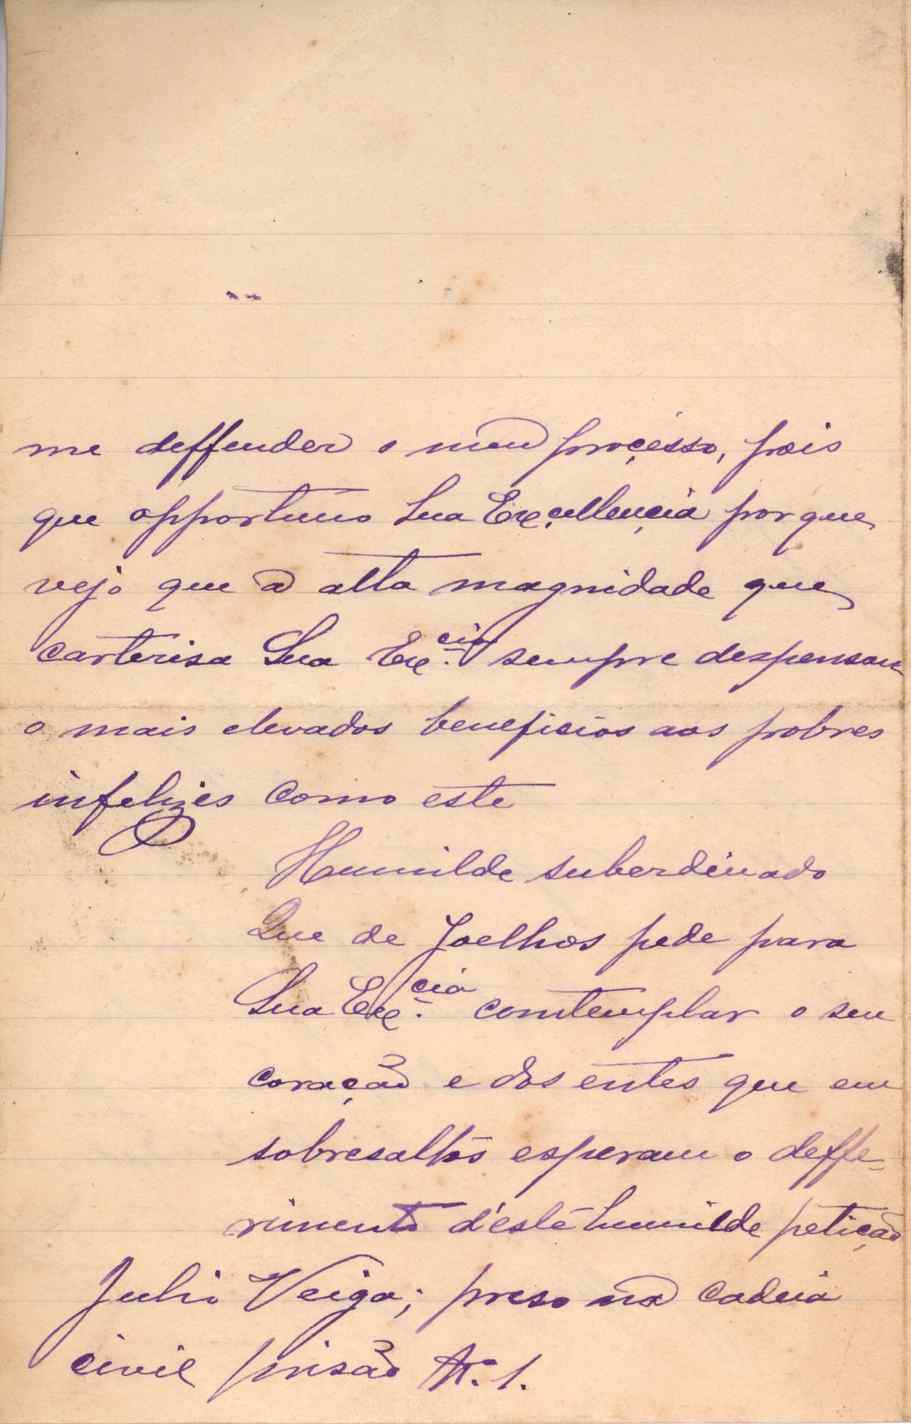 me deffender o meu proçésso, pois
que opportuno Sua Exçellençia porque
vejo que a alta magnidade que
carterisa Sua Exᶜⁱᵃ. sempre despensou
o mais elevados beneficios aos pobres
infelizes como este
Humilde suberdinado
Que de Joelhos pede para
Sua Exᶜⁱᵃ. comtemplar o seu
coração e dos entes que em
sobresaltos esperam o deffe-
rimento d'este humilde petição
Julio Veiga; preso na cadeia
civil prisão Nº. 1.